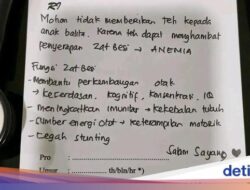 R/
Mohon tidak memberikan teh kepada
anak balita. Karena teh dapat menghambat
penyerapan Zat Besi → ANEMIA
Fungsi Zat Besi
- Membantu perkembangan otak
→ Kecerdasan, kognitif, konsentrasi, IQ
- Meningkatkan imunitas → kekebalan tubuh
- Sumber energi otot → keterampilan motorik
- Cegah stunting
Salam Sayang
Pro : 
Umur : th/bln/hr *)
detik